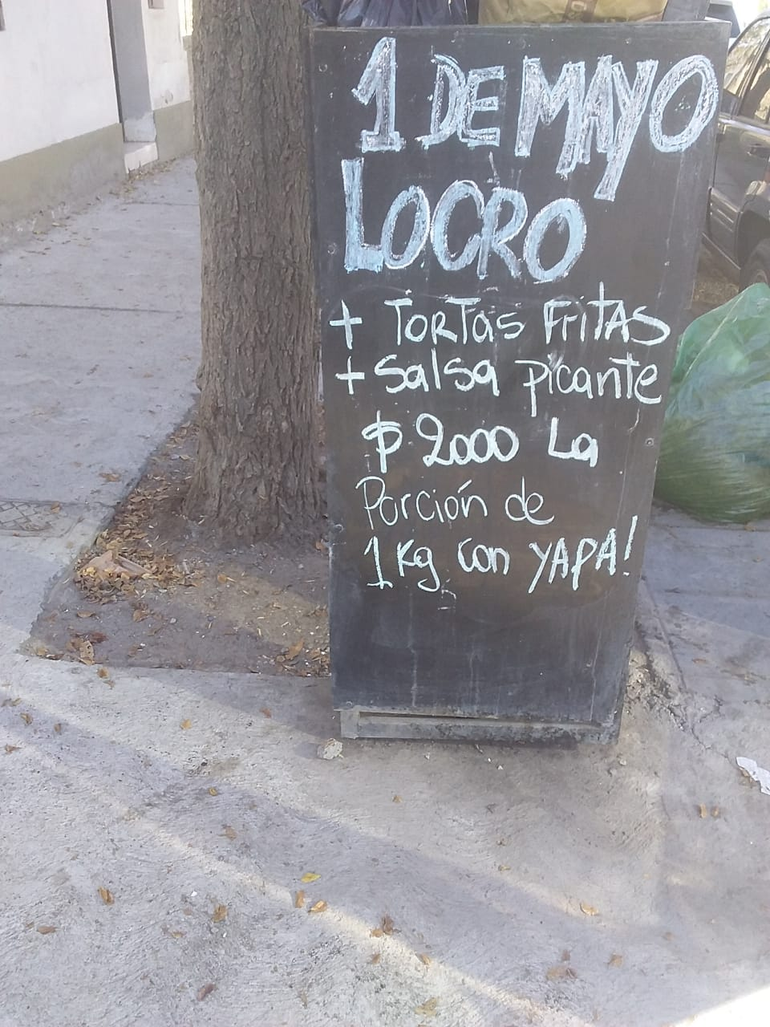 1 DE MAYO
LOCRO
+ TORTAS FRITAS
+ Salsa picante
$ 2000 La
Porción de
1 Kg con YAPA!